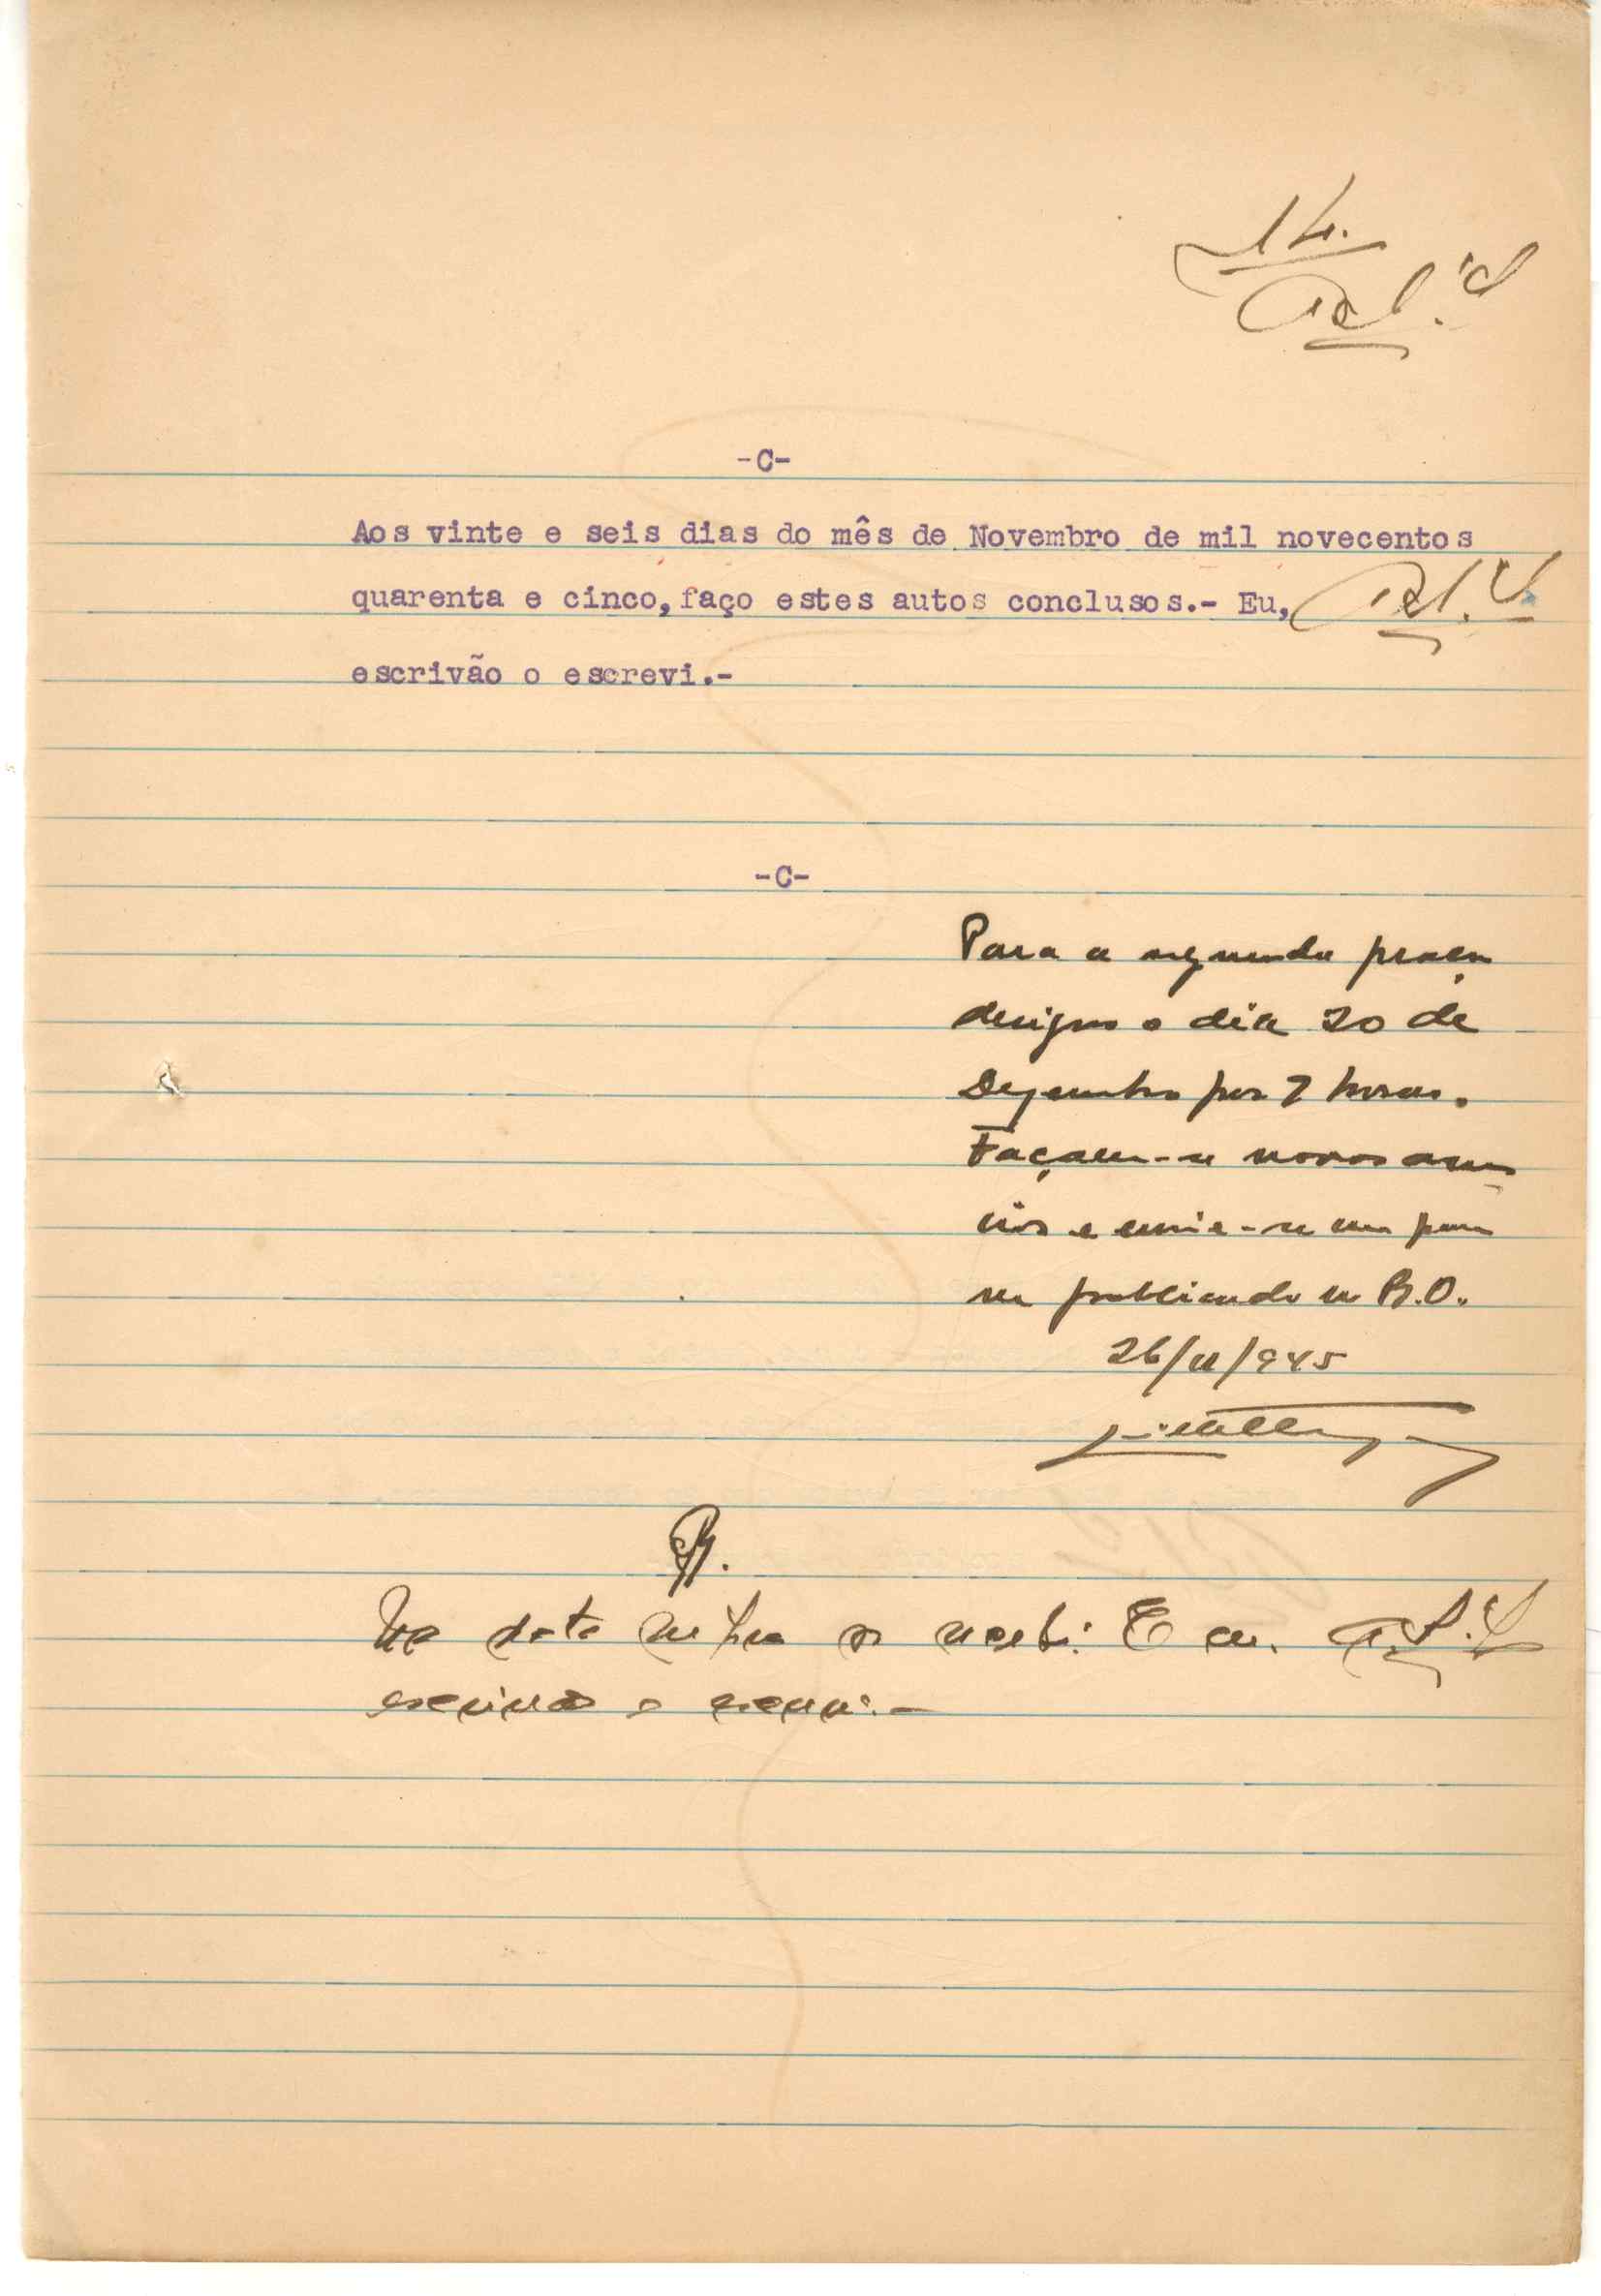 14.
-C-
Aos vinte e seis dias do mês de Novembro de mil novecentos
quarenta e cinco, faço estes autos conclusos.- Eu,
escrivão o escrevi.-
-C-
Para a segunda praça
designo o dia 20 de
Dezembro por 7 horas.
Façam-se novos anun
cios e envie-se um para
ser publicando no B.O.
26/11/945
R.
Na data supra os recebi. E eu,
escrivão o escrevi.-